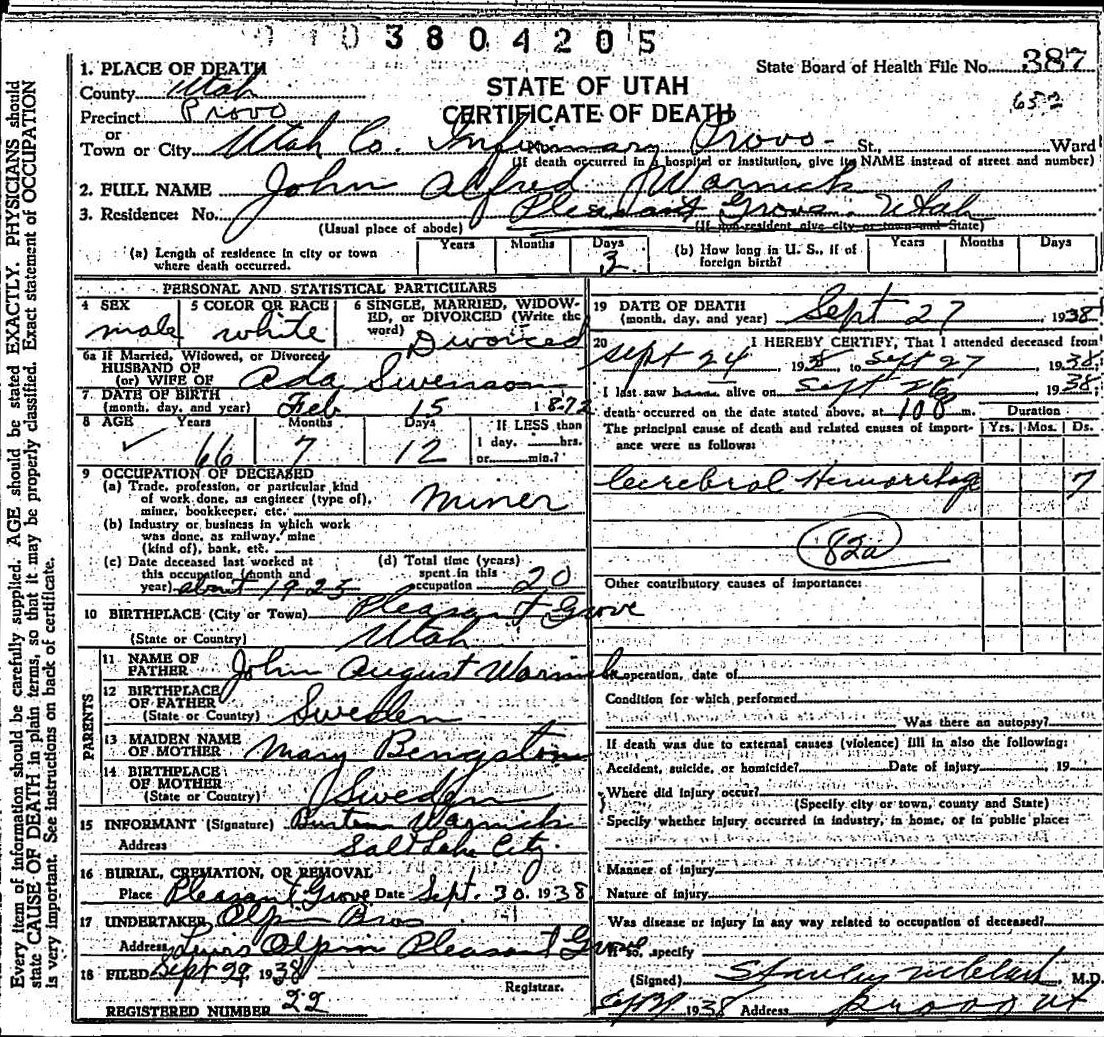 3804205
1. PLACE OF DEATH
State Board of Health File No. 387
County Utah
STATE OF UTAH
652
Precinct Provo
CERTIFICATE OF DEATH
or
Town or City Utah Co. Infirmary Provo St., Ward
(If death occurred in a hospital or institution, give its NAME instead of street and number)
2. FULL NAME John Alfred Warnick
3. Residence: No. Pleasant Grove Utah
(Usual place of abode) (If non-resident give city or town and State)
(a) Length of residence in city or town where death occurred. Years Months Days 3
(b) How long in U. S., if of foreign birth? Years Months Days
PERSONAL AND STATISTICAL PARTICULARS
4 SEX male
5 COLOR OR RACE white
6 SINGLE, MARRIED, WIDOWED, or DIVORCED (Write the word) Divorced
6a If Married, Widowed, or Divorced
HUSBAND OF
(or) WIFE OF Ada Swenson
7 DATE OF BIRTH
(month, day, and year) Feb 15 1872
8 AGE Years 66 Months 7 Days 12
If LESS than
1 day, hrs.
or min.?
9 OCCUPATION OF DECEASED
(a) Trade, profession, or particular kind
of work done, as engineer (type of),
miner, bookkeeper, etc. miner
(b) Industry or business in which work
was done, as railway, mine
(kind of), bank, etc.
(c) Date deceased last worked at
this occupation (month and
year) about 1925
(d) Total time (years)
spent in this
occupation 20
10 BIRTHPLACE (City or Town) Pleasant Grove
(State or Country) Utah
PARENTS
11 NAME OF
FATHER John August Warnick
12 BIRTHPLACE
OF FATHER
(State or Country) Sweden
13 MAIDEN NAME
OF MOTHER Mary Bengston
14 BIRTHPLACE
OF MOTHER
(State or Country) Sweden
15 INFORMANT (Signature) Warnick
Address Salt Lake City
16 BURIAL, CREMATION, OR REMOVAL
Place Pleasant Grove Date Sept. 30, 1938
17 UNDERTAKER Olpin Bros
Address Olpin Pleasant Grove
18 FILED Sept 29, 1938
Registrar.
REGISTERED NUMBER 22
19 DATE OF DEATH
(month, day, and year) Sept 27 1938
20 I HEREBY CERTIFY, That I attended deceased from
Sept 24, 1938, to Sept 27 1938.
I last saw alive on Sept 26 1938,
death occurred on the date stated above, at m.
The principal cause of death and related causes of importance were as follows:
Duration
Yrs. Mos. Ds.
Cerebral Hemorrhage 7
82a
Other contributory causes of importance:
operation, date of
Condition for which performed
Was there an autopsy?
If death was due to external causes (violence) fill in also the following:
Accident, suicide, or homicide? Date of injury 19
Where did injury occur?
(Specify city or town, county and State)
Specify whether injury occurred in industry, in home, or in public place:
Manner of injury
Nature of injury
Was disease or injury in any way related to occupation of deceased?
If so, specify
(Signed) Stanley M.D.
1938 Address Provo Ut
Every item of information should be carefully supplied. AGE should be stated EXACTLY. PHYSICIANS should
state CAUSE OF DEATH in plain terms, so that it may be properly classified. Exact statement of OCCUPATION
is very important. See instructions on back of certificate.